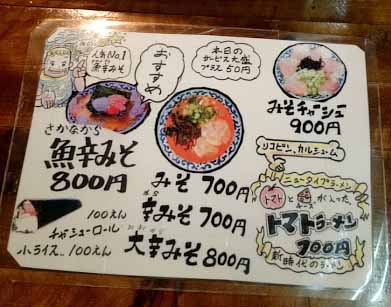 人気No.1
魚辛みそ
おすすめ
本日の
サービス大盛
プラス50円
みそチャーシュー
900円
さかなから
魚辛みそ
800円
みそ 700円
辛みそ 700円
大辛みそ 800円
100えん
チャーシューロール
小ライス..100えん
リコピン、カルシューム
ニュータイプラーメン
トマトと
が入った
トマトラーメン
700円
新時代のラーメン